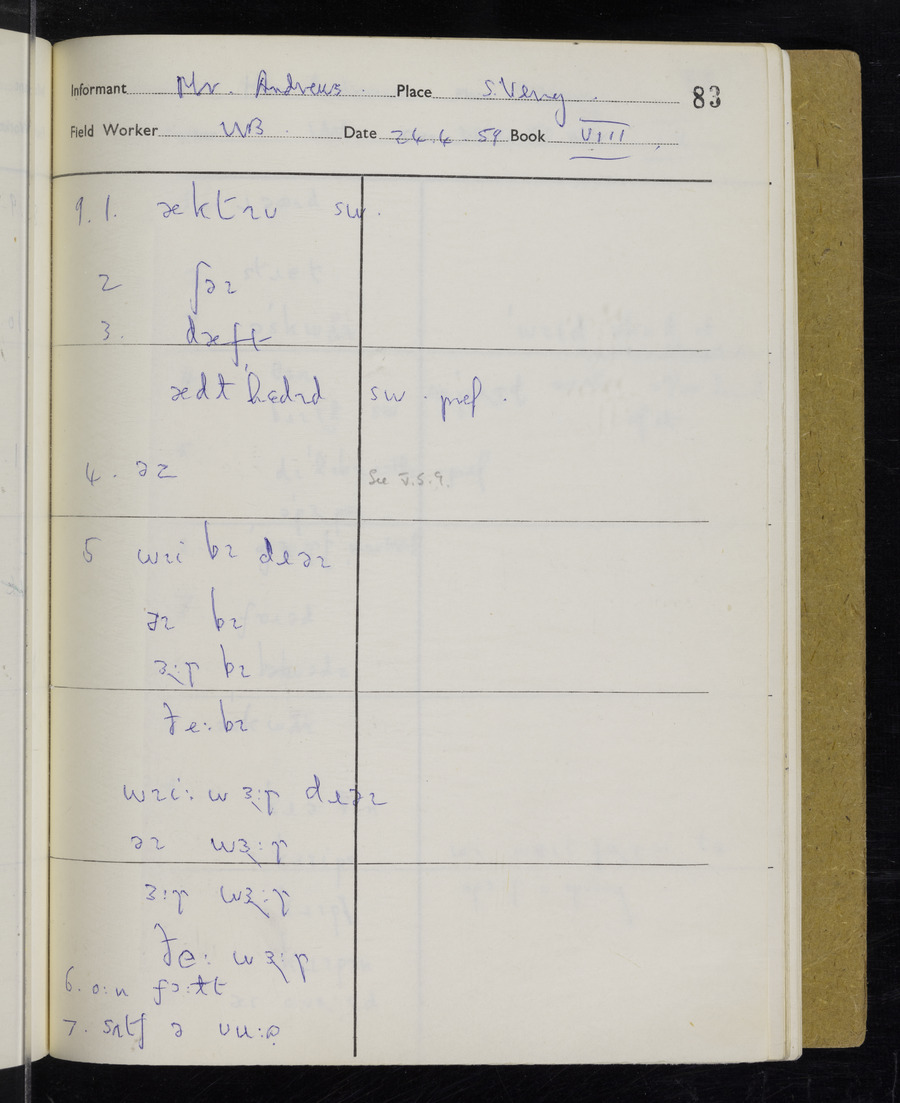 Informant Mr. Andrews. Place S. Verny. 83
Field Worker WB. Date 24.4.59 Book VIII
9.1. sw.
2 ʃəɪ
3. dæft
ædtʹhɛdɪd sw. pref.
4. əz See V.5.9.
5 wɪi bɪ deəɪ
əɪ bɪ
ɜ:ɽ bɪ
ðe: bɪ
wɪi: wɜ:ɽ deəɪ
əɪ wɜ:ɽ
ɜ:ɽ wɜ:ɽ
ðe: wɜ:ɽ
6. o:n
7. sʌtʃ ə vu: